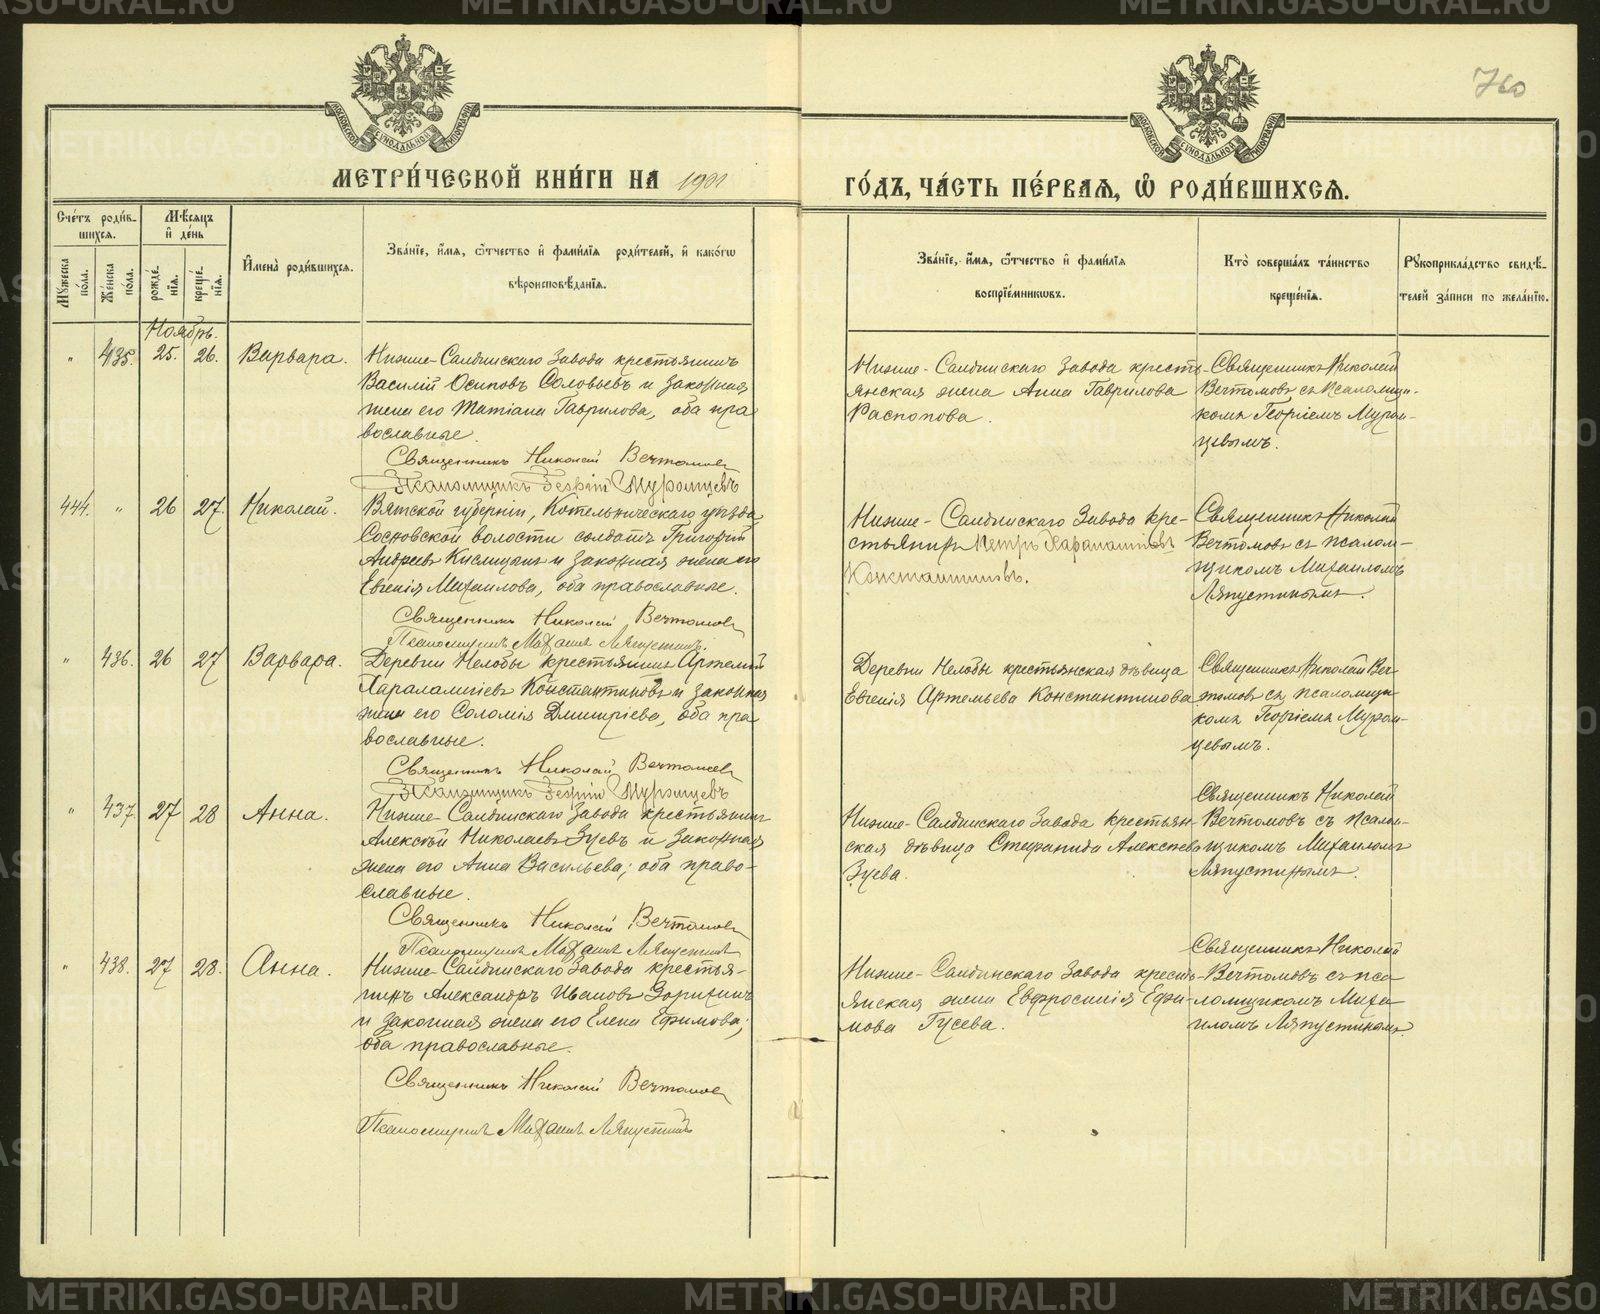 METRIKI.GASO-URAL.RU
МОСКОВСКОЙ СѴНОДАЛЬНОЙ ТИПОГРАФІИ
МОСКОВСКОЙ СѴНОДАЛЬНОЙ ТИПОГРАФІИ
МЕТРИ́ЧЕСКОЙ КНИ́ГИ НА 1901
ГО́ДЪ, ЧА́СТЬ ПЕ́РВАѦ, Ѽ РОДИ́ВШИХСѦ.
Сче́тъ роди́в-
шихсѧ.
Мѣ́сѧцъ
и҆ де́нь
Мꙋ́жеска по́ла.
Же́нска по́ла.
рожде́нїѧ.
креще́нїѧ.
И҆мена̀ роди́вшихсѧ.
Зва́нїе, и҆́мѧ, ѻ҆́тчество и҆ фами́лїѧ роди́телей, и҆ како́гѡ
вѣроисповѣ́данїѧ.
Зва́нїе, и҆́мѧ, ѻ҆́тчество и҆ фами́лїѧ
воспрїе́мникѡвъ.
Кто̀ соверша́лъ та́инство
креще́нїѧ.
Рꙋкоприкла́дство свидѣ́-
телей за́писи по жела́нїю.
Ноябрь.
" 435. 25. 26. Варвара.
Нижне-Салдинскаго Завода крестьянинъ
Василій Осиповъ Соловьевъ и законная
жена его Татіана Гаврилова, оба пра
вославные.
Священникъ Николай Вечтомовъ
Псаломщикъ Георгій Муромцевъ
Нижне-Салдинскаго Завода кресть-
янская жена Анна Гаврилова
Распопова.
Священникъ Николай
Вечтомовъ съ псаломщи-
комъ Георгіемъ Муром-
цевымъ.
444. " 26 27. Николай.
Вятской губерніи, Котельническаго уѣзда,
Сосновской волости солдатъ Григорій
Андреевъ Кислицынъ и законная жена его
Евгенія Михаилова, оба православные.
Священникъ Николай Вечтомовъ
Псаломщикъ Михаилъ Ляпустинъ.
Нижне-Салдинскаго Завода кре-
стьянинъ Петръ Харалампіевъ
Константиновъ.
Священникъ Николай
Вечтомовъ съ псалом-
щикомъ Михаиломъ
Ляпустинымъ.
" 436. 26 27 Варвара.
Деревни Нелобы крестьянинъ Артемій
Харалампіевъ Константиновъ и законная
жена его Соломія Дмитріева, оба пра
вославные.
Священникъ Николай Вечтомовъ
Псаломщикъ Георгій Муромцевъ
Деревни Нелобы крестьянская дѣвица
Евгенія Артемьева Константинова
Священникъ Николай Веч-
томовъ съ псаломщи-
комъ Георгіемъ Муром-
цевымъ.
" 437. 27 28 Анна.
Нижне-Салдинскаго Завода крестьянинъ
Алексѣй Николаевъ Зуевъ и законная
жена его Анна Васильева; оба право-
славные.
Священникъ Николай Вечтомовъ
Псаломщикъ Михаилъ Ляпустинъ
Нижне-Салдинскаго Завода крестьян-
ская дѣвица Стефанида Алексѣева
Зуева.
Священникъ Николай
Вечтомовъ съ псалом-
щикомъ Михаиломъ
Ляпустинымъ.
" 438. 27 28. Анна.
Нижне-Салдинскаго Завода крестья-
нинъ Александръ Ивановъ Зорихинъ
и законная жена его Елена Ефимова;
оба православные.
Священникъ Николай Вечтомовъ
Псаломщикъ Михаилъ Ляпустинъ
Нижне-Салдинскаго Завода кресть-
янская жена Евфросинія Ефи-
мова Гусева.
Священникъ Николай
Вечтомовъ съ пса
ломщикомъ Миха
иломъ Ляпустинымъ